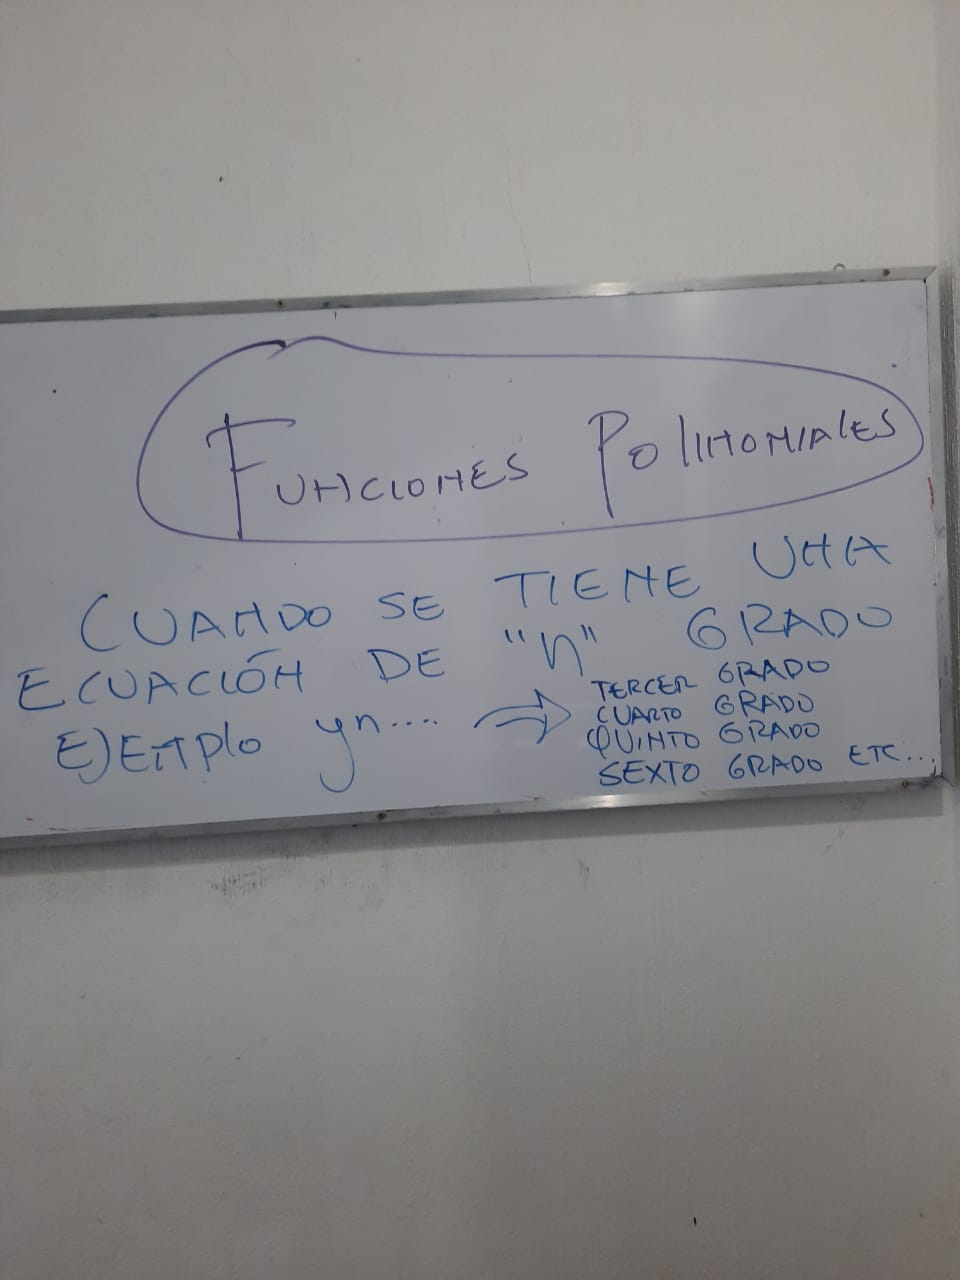 FUNCIONES POLINOMIALES
CUANDO SE TIENE UNA
ECUACIÓN DE "n" GRADO
EJEMPLO yn.... ⇒ TERCER GRADO
CUARTO GRADO
QUINTO GRADO
SEXTO GRADO ETC...